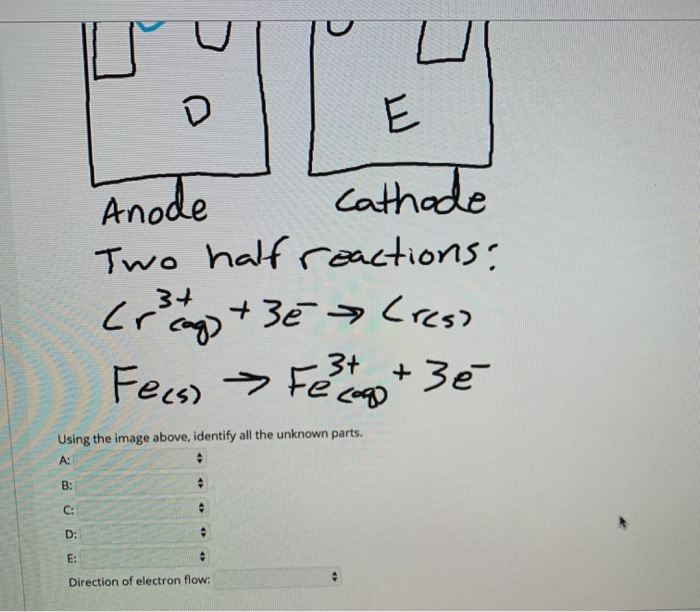 D
E
Anode
Cathode
Two half reactions:
Cr³⁺(aq) + 3e⁻ → Cr(s)
Fe(s) → Fe³⁺(aq) + 3e⁻
Using the image above, identify all the unknown parts.
A:
B:
C:
D:
E:
Direction of electron flow: